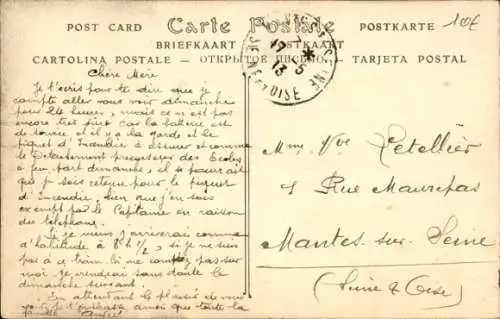 POST CARD Carte Postale POSTKARTE
BRIEFKAART POSTKAART
CARTOLINA POSTALE — ОТКРЫТОЕ ПИСЬМО — TARJETA POSTAL
10€
SEINE ET OISE
17-5
13
Chère Mère
Je t'écris pour te dire que je
compte aller vous voir dimanche
pour 24 heures, mais ce n'est pas
encore très sûr car la batterie est
de service et il y a la garde et le
piquet d'Incendie à assurer et comme
le Détachement des écoles
à feu part dimanche, il se pourrait
que je sois retenu pour le piquet
d'Incendie, bien que j'en sois
exempt par le Capitaine en raison
du téléphone.
Si je viens j'arriverai comme
d'habitude à 8h 1/2, si je ne suis
pas à ce train là ne comptez pas sur
moi je viendrai sans doute le
dimanche suivant.
En attendant le plaisir de vous
voir je t'embrasse ainsi que toute la
famille André
Mme Vve Letellier
1 Rue Maurepas
Mantes sur Seine
(Seine & Oise)